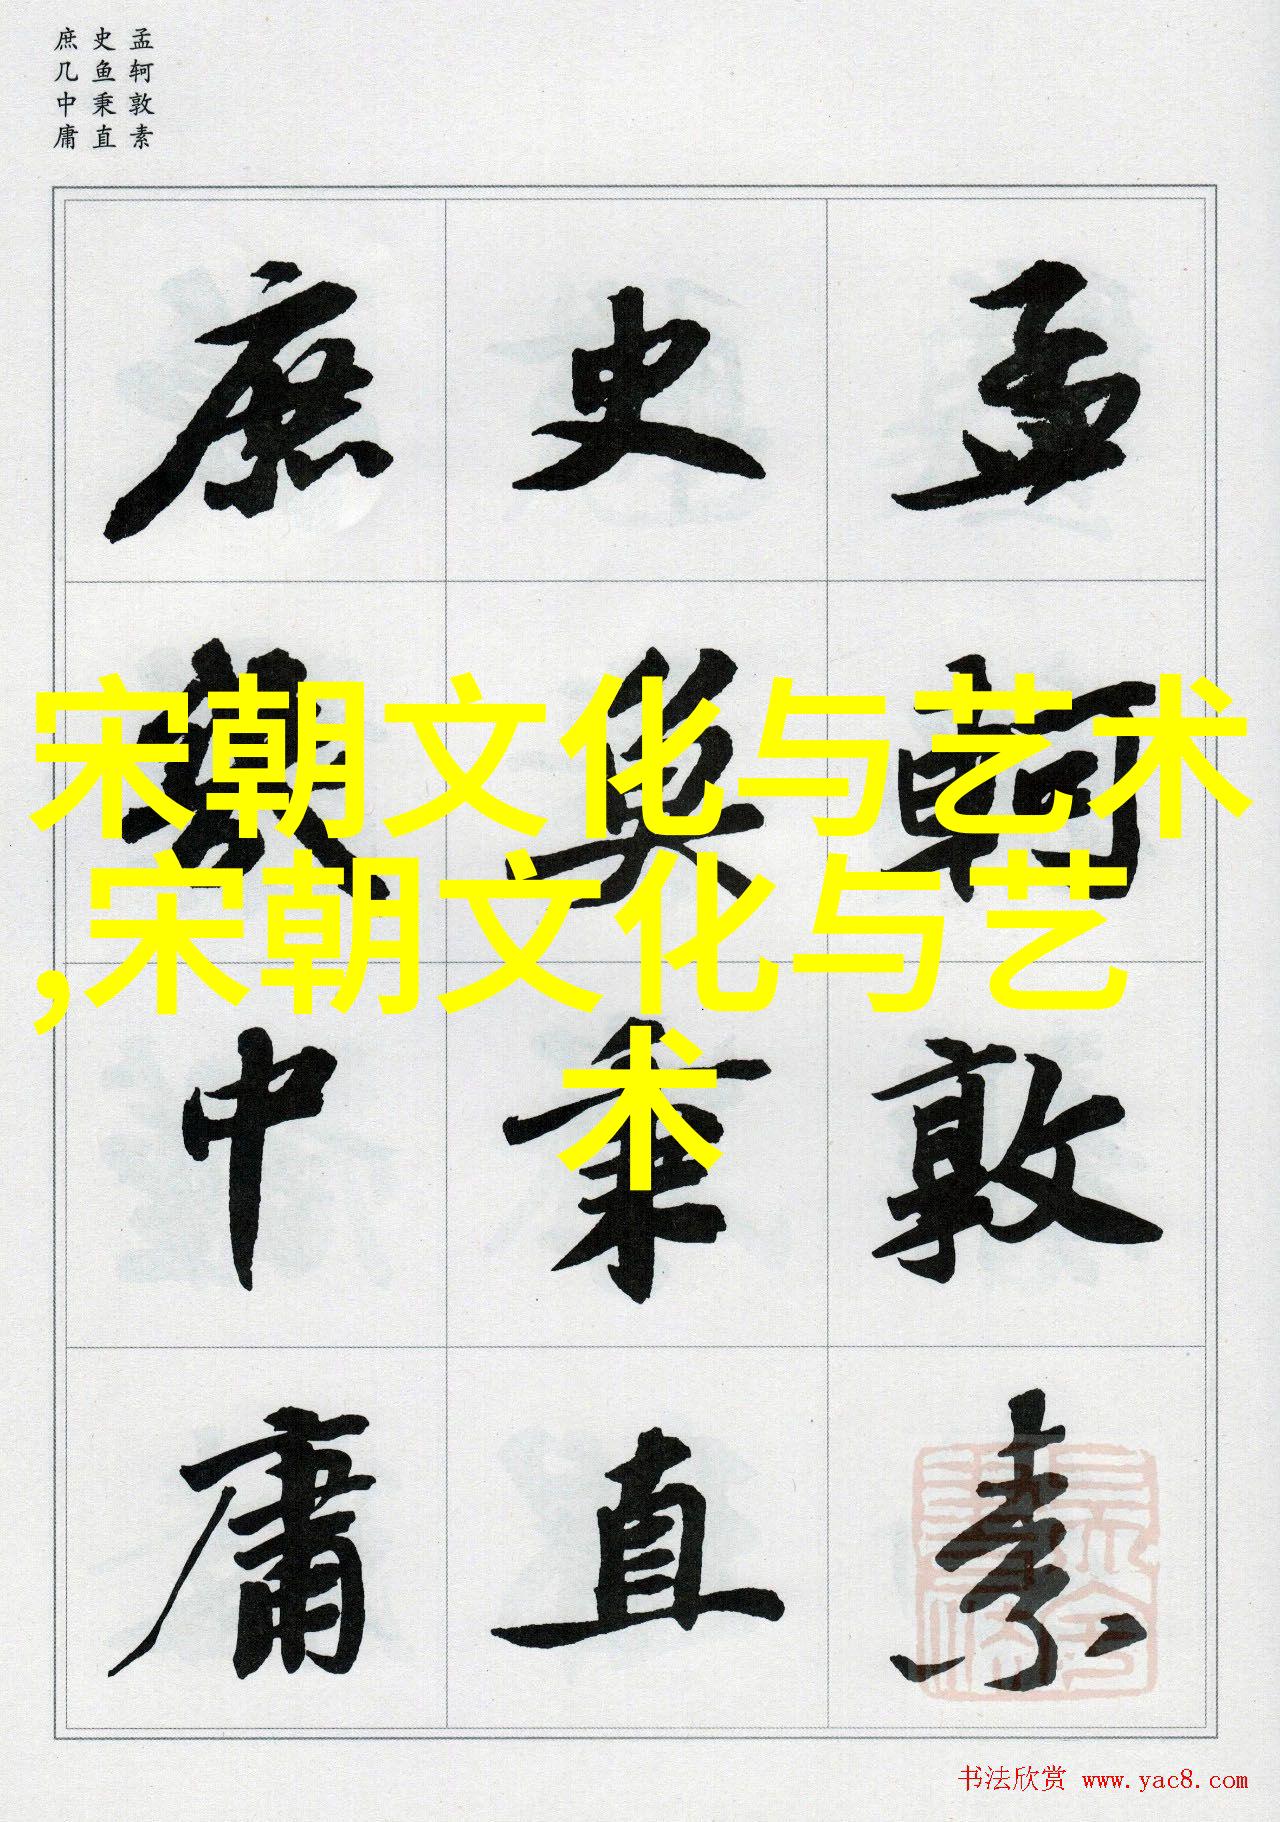 孟轲敦素
史鱼秉直
庶几中庸
孟轲敦素
史鱼秉直
庶几中庸
宋朝文化与艺术
,宋朝文化与艺
术
书法欣赏 www.yac8.com